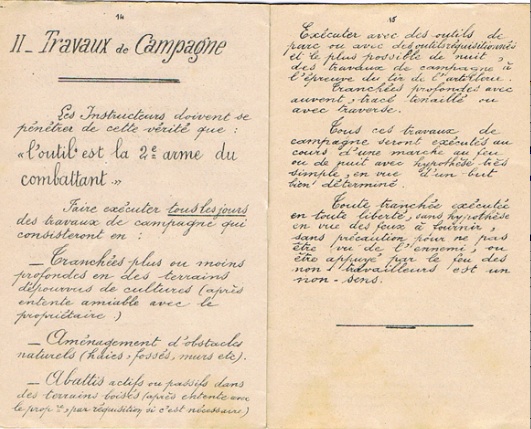 14
II_ Travaux de Campagne
Les Instructeurs doivent se
pénétrer de cette vérité que :
«l'outil est la 2e arme du
combattant.»
Faire exécuter tous les jours
des travaux de campagne qui
consisteront en :
_ Tranchées plus ou moins
profondes en des terrains
dépourvus de cultures (après
entente amiable avec le
propriétaire.)
_ Aménagement d'obstacles
naturels (haies, fossés, murs etc).
_ Abattis actifs ou passifs dans
des terrains boisés (après entente avec
le prop.re, par réquisition si c'est nécessaire)
15
Exécuter avec des outils de
parc ou avec des outils réquisitionnés
et le plus possible de nuit,
des travaux de campagne à
l'épreuve du tir de l'artillerie.
Tranchées profondes avec
auvent, tracé tenaillé ou
avec traverse.
Tous ces travaux de
campagne seront exécutés au
cours d'une marche au feu
ou de nuit avec hypothèse très
simple, en vue d'un but
bien déterminé.
Toute tranchée exécutée
en toute liberté, sans hypothèse
en vue des feux à fournir,
sans précaution pour ne pas
être vu de l'ennemi, ou
être appuyé par le feu des
non-travailleurs est un
non-sens.